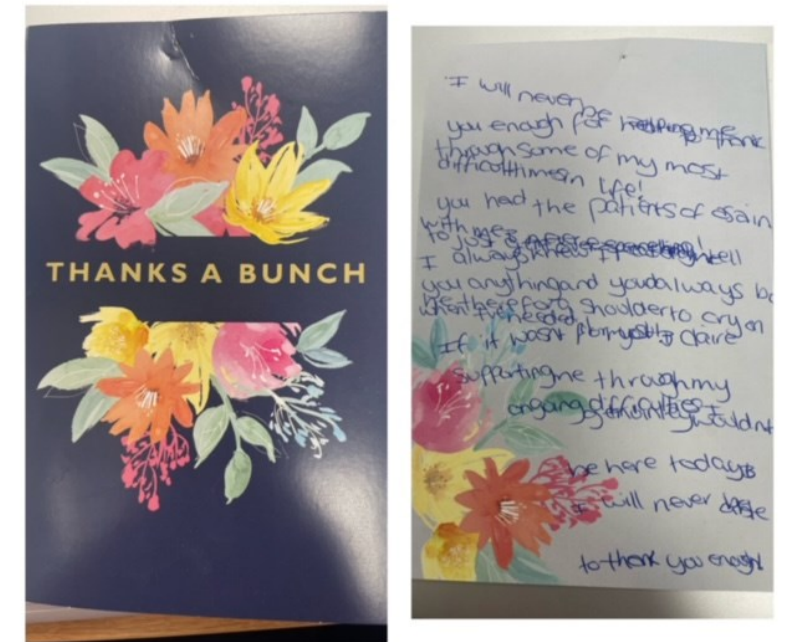 THANKS A BUNCH
I will never be
you enough for helping me thank
through some of my most
difficult times in life!
you had the patients of a sain
with me
to just
I always tell
you anything and you'd always be
be there for a shoulder to cry on
when I've needed.
If it wasn't for you Claire
supporting me through my
ongoing difficulties I wouldnt
be here today
I will never
to thank you enough